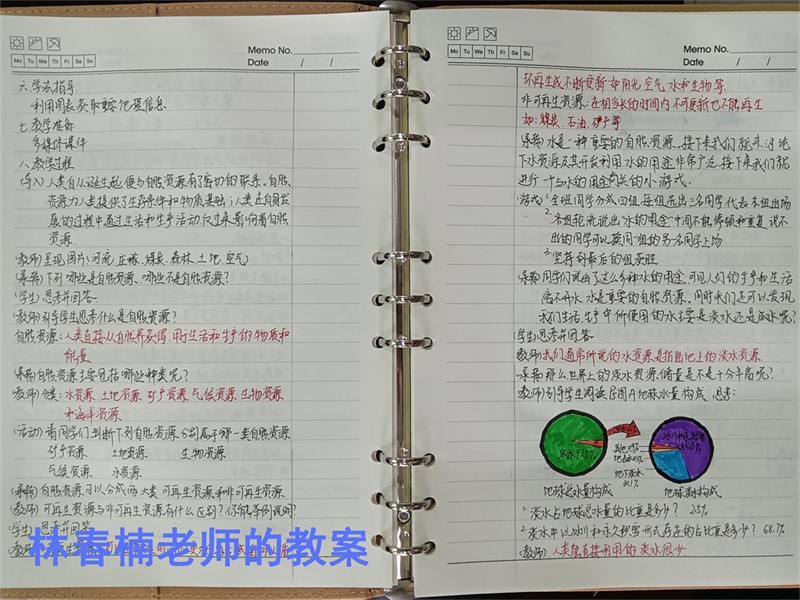 Memo No.
Mo Tu We Th Fr Sa Su
Date / /
六.学法指导
利用图表获取重要地理信息
七.教学准备
多媒体课件
八.教学过程
(导入)人类自从诞生起,便与自然资源有了密切的联系。自然
资源为人类提供了生存条件和物质基础;人类在自身发
展的过程中通过生活和生产活动反过来影响着自然
资源.
(教师)呈现图片:河流、庄稼、煤炭、森林、土地、空气
(承转)下列哪些是自然资源、哪些不是自然资源?
(学生)思考并回答.
(教师)引导学生思考什么是自然资源?
自然资源:人类直接从自然界获得,用于生活和生产的物质和
能量
(承转)自然资源主要包括哪些种类呢?
(教师)分类:水资源 土地资源 矿产资源 气候资源 生物资源
和海洋资源
(活动)请同学们判断下列自然资源分别属于哪一类自然资源
矿产资源 土地资源 生物资源
气候资源 水资源
(承转)自然资源可以分成两大类 可再生资源和非可再生资源
(教师)可再生资源与非可再生资源有什么区别?你能举例说明?
(学生)思考并回答
(教师)
林春楠老师的教案
Memo No.
Mo Tu We Th Fr Sa Su
Date / /
环再生或不断更新 如阳光 空气 水和生物等
非可再生资源:在相当长的时间内不可更新也不能再生
如:煤炭、石油、矿产等
(承转)水是一种重要的自然资源,接下来我们就来讨论
下水资源及其开发利用 水的用途非常广泛 接下来我们就
进行一个与水的用途有关的小游戏.
(游戏) 1 全班同学分成四组,每组选出三名同学代表本组出场
2 各组轮流说出"水的用途"中间不能停顿和重复,说不
出的同学可以换同组的另一名同学上场
3 坚持到最后的组获胜
(承转)同学们说出了这么多种水的用途,可见人们的生产和生活
离不开水,水是重要的自然资源,同时我们还可以发现
我们生活、生产中所使用的水主要是淡水还是咸水呢?
(学生)思考并回答.
(教师)我们通常所说的水资源是指陆地上的淡水资源
(承转)那么世界上的淡水资源储量是不是十分丰富呢?
(教师)引导学生阅读 地球水量构成 思考:
咸水97.5%
地下水
地球总水量构成 地球淡水构成
1 淡水占地球总水量的比重是多少? 2.5%
2 淡水中以冰川和永久积雪形式存在的占比重是多少? 68.7%
(教师) 人类能直接利用的淡水很少